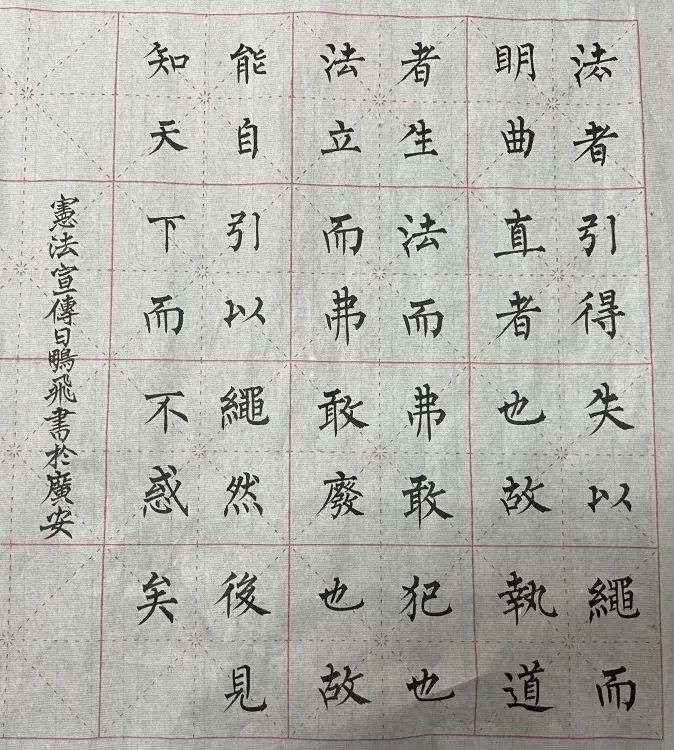 法者引得失以繩而
明曲直者也故執道
者生法而弗敢犯也
法立而弗敢廢也故
能自引以繩然後見
知天下而不惑矣
憲法宣傳日鵬飛書於廣安